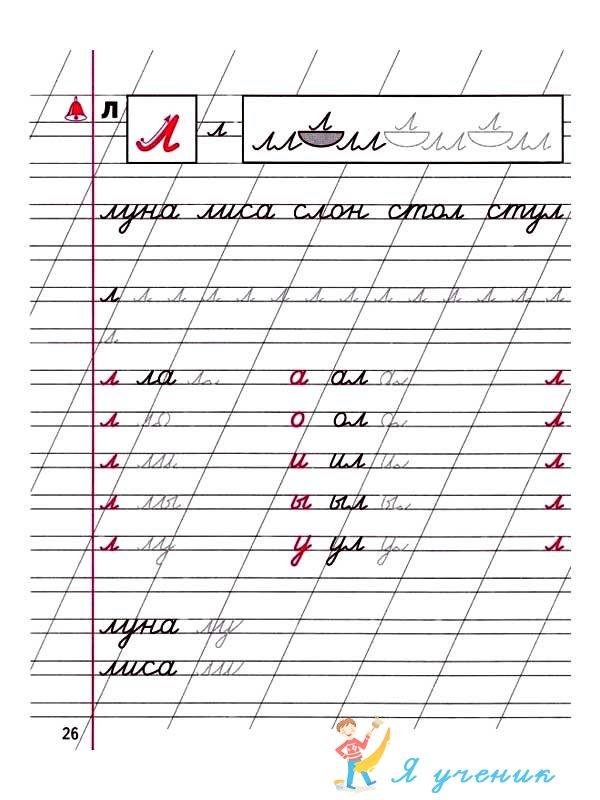 Л Л л лл л лл л лл л лл
луна лиса слон стол стул
л л л л л л л л л л л л л л
л
л ла ла а ал ал л
л ло о ол ол л
л ли и ил ил л
л лы ы ыл ыл л
л лу у ул ул л
луна лу
лиса ли
26
Я ученик